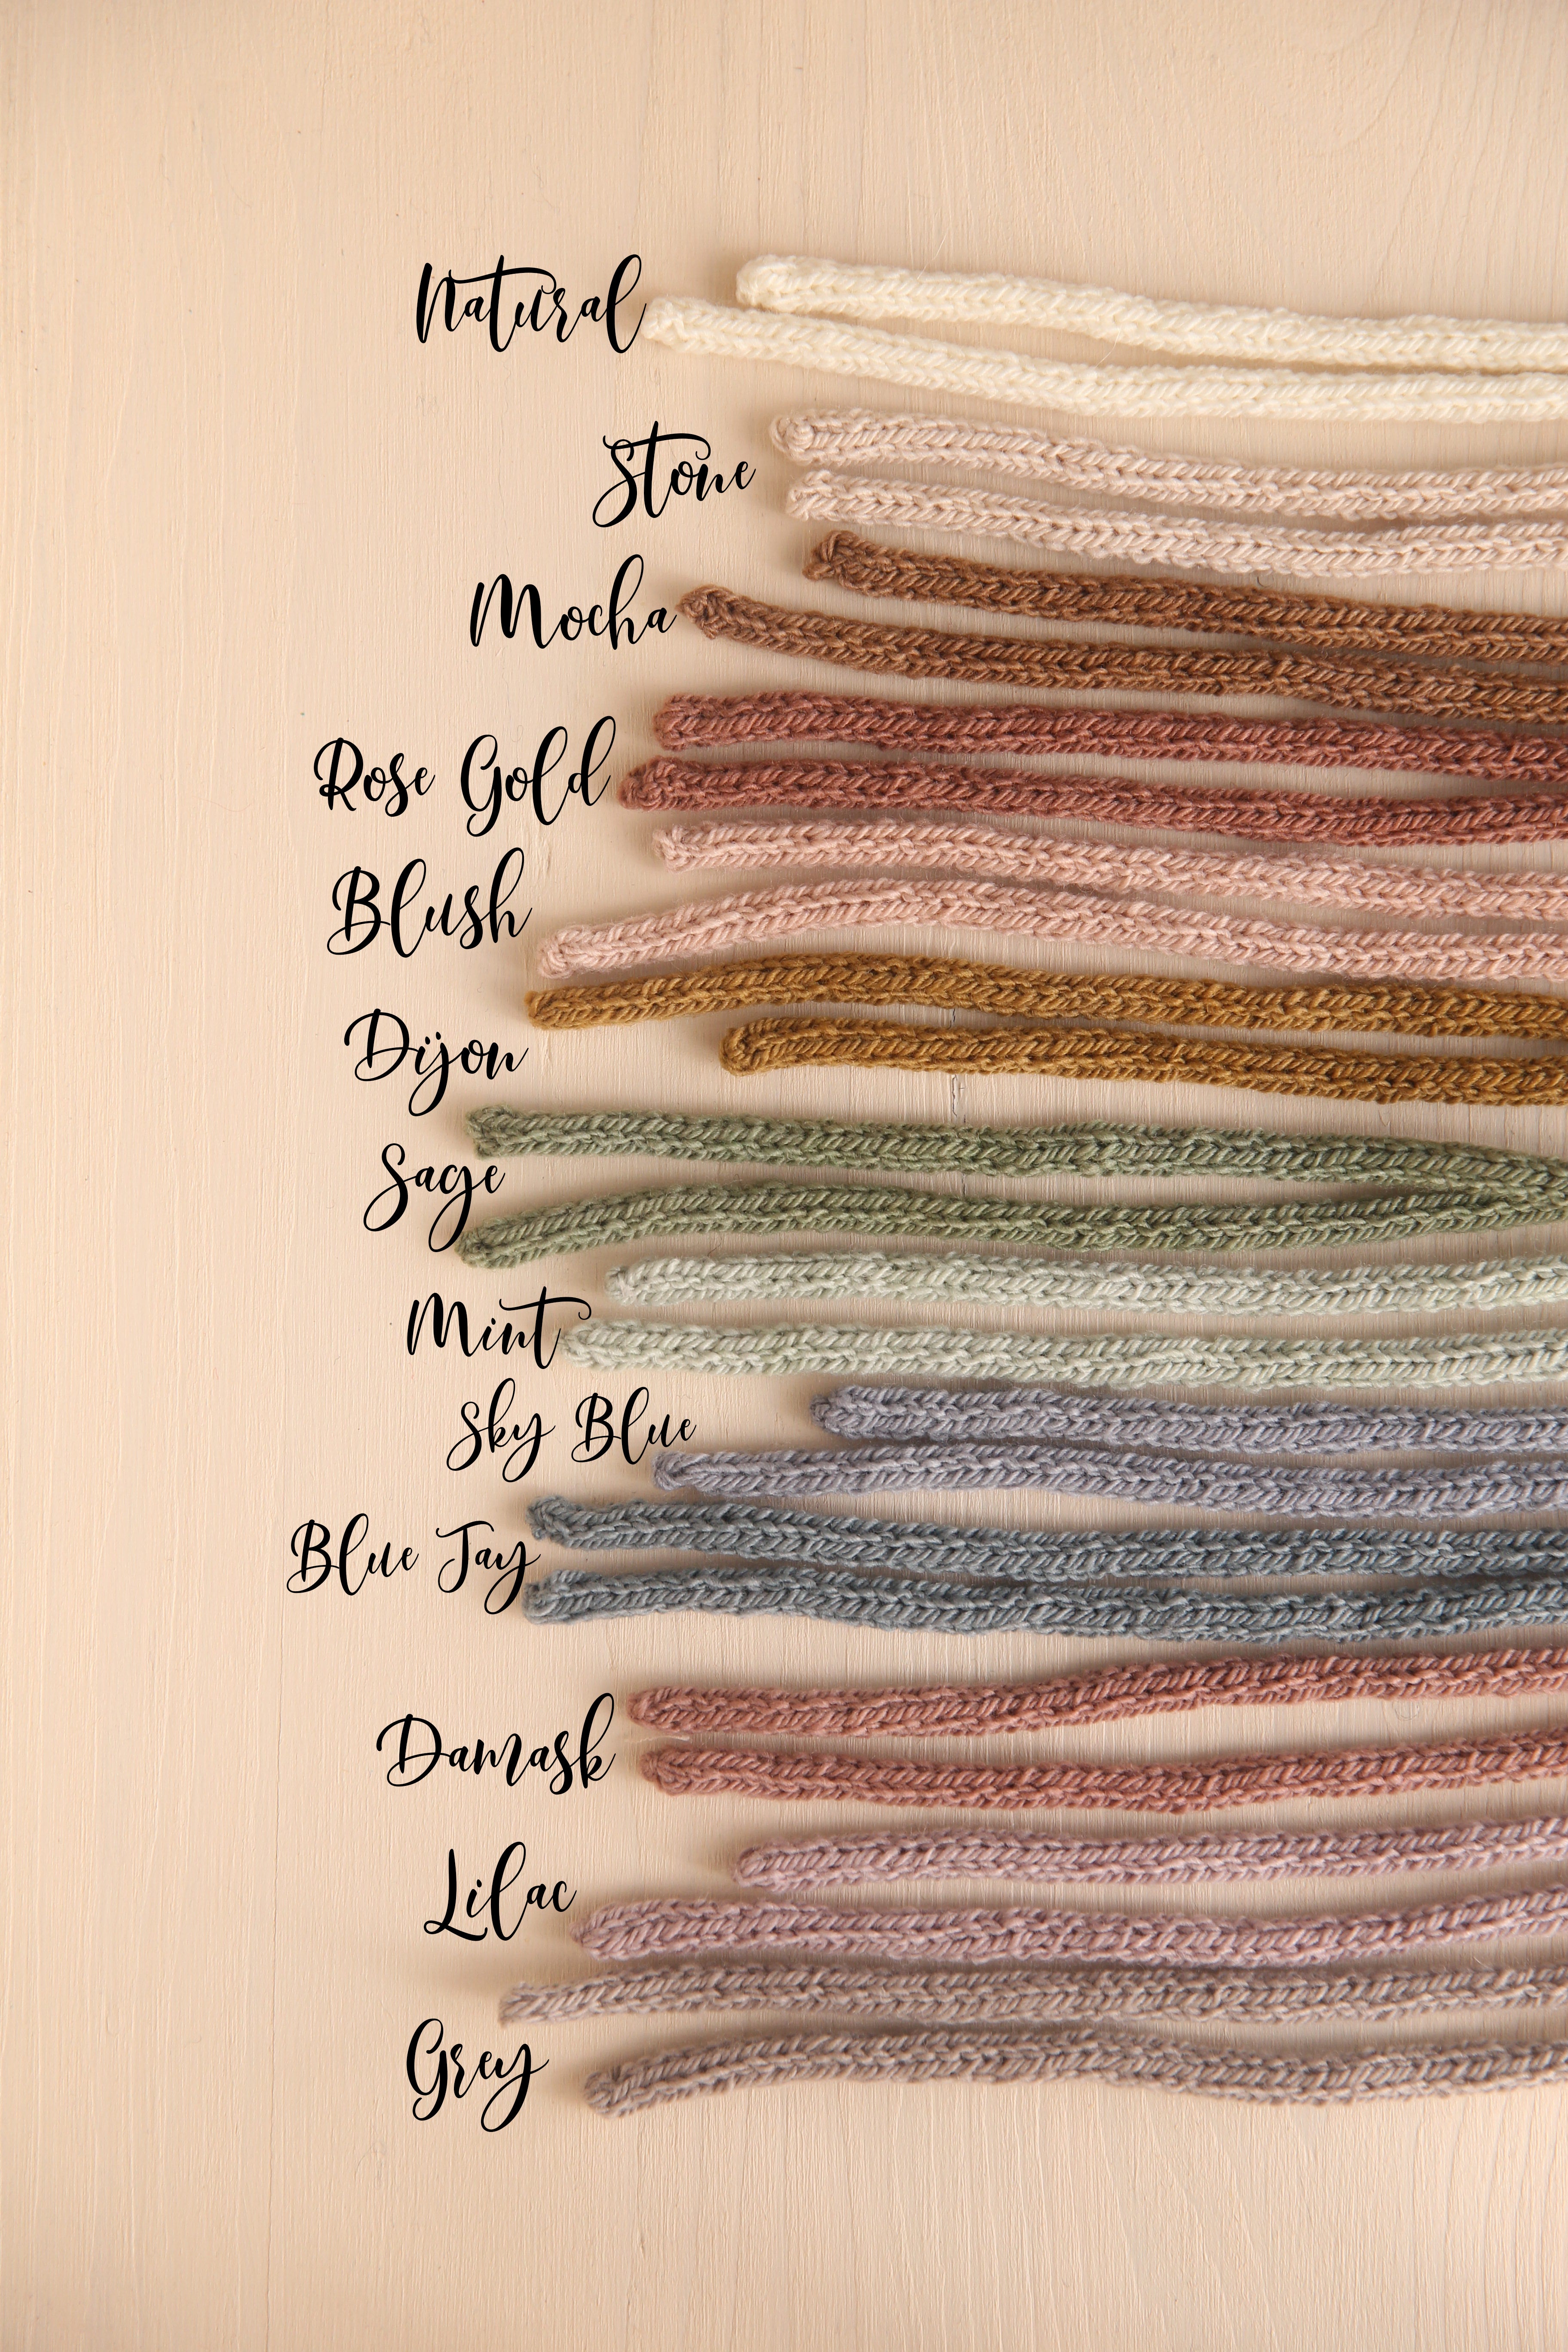 Natural
Stone
Mocha
Rose Gold
Blush
Dijon
Sage
Mint
Sky Blue
Blue Jay
Damask
Lilac
Grey